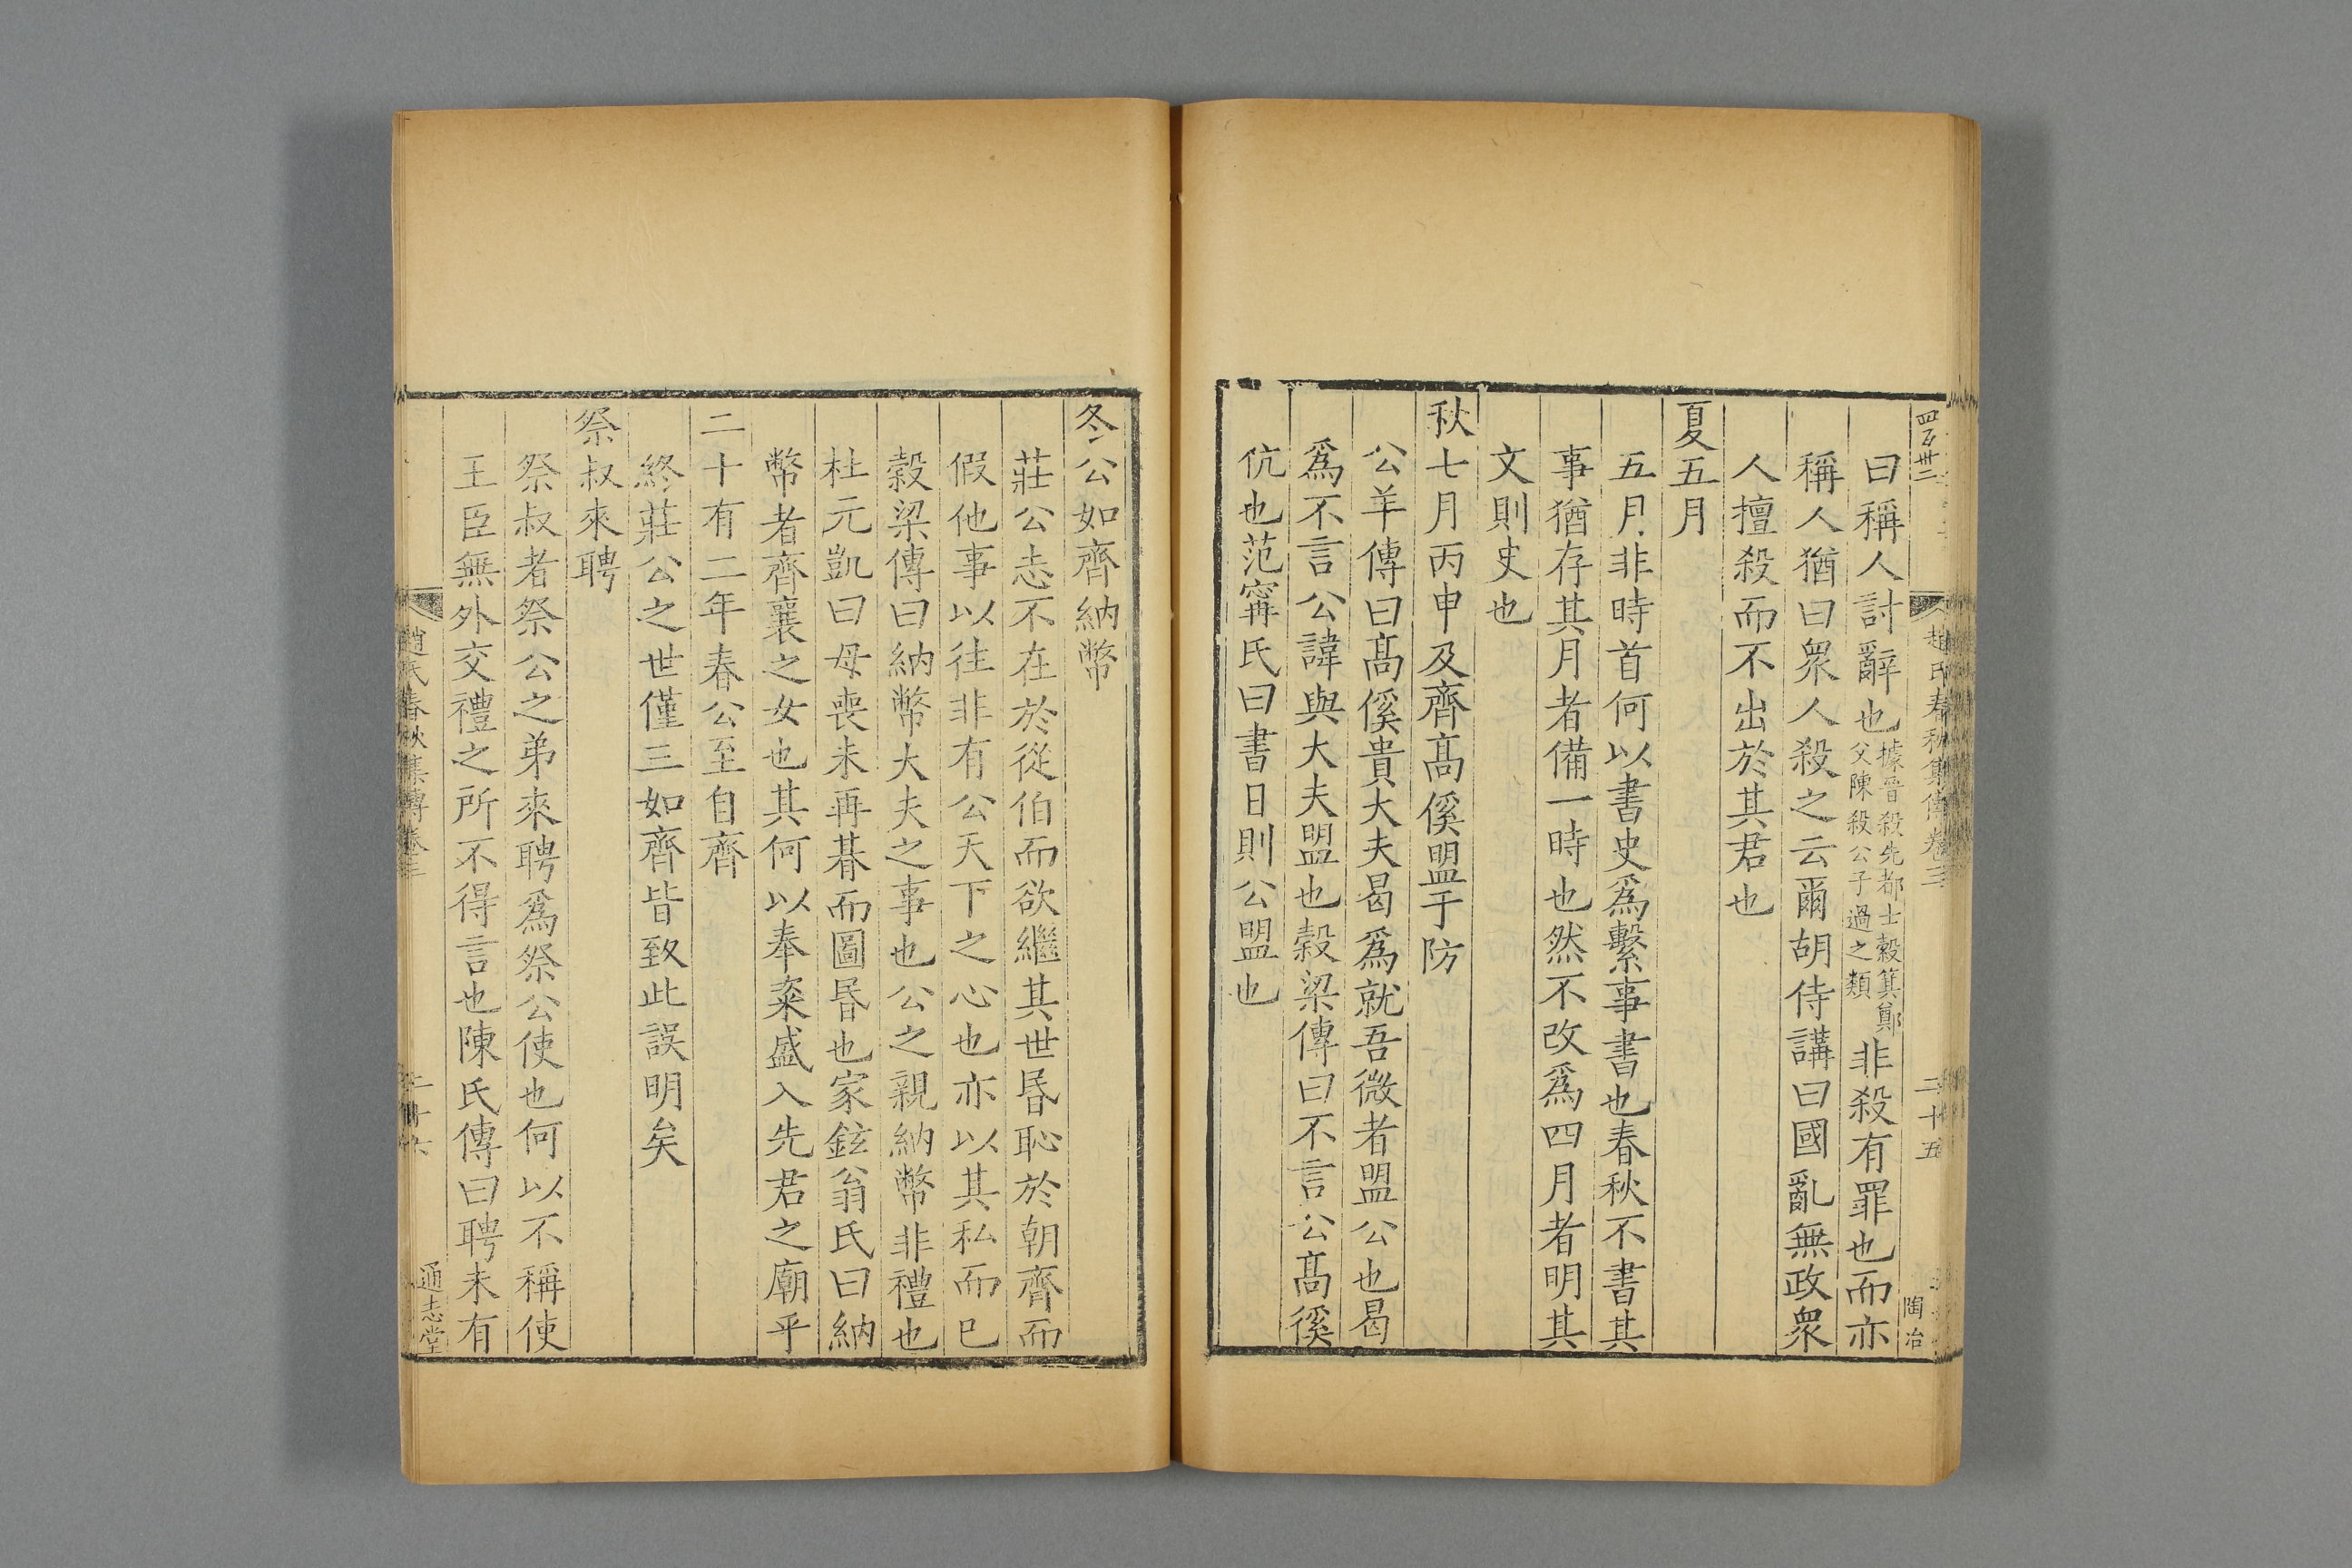 四百廿二
趙氏春秋集傳卷三
二十五
陶冶
曰稱人討辭也據晉殺先都士縠箕鄭父陳殺公子過之類非殺有罪也而亦
稱人猶曰衆人殺之云爾胡侍講曰國亂無政衆
人擅殺而不出於其君也
夏五月
五月非時首何以書史爲繫事書也春秋不書其
事猶存其月者備一時也然不改爲四月者明其
文則史也
秋七月丙申及齊髙傒盟于防
公羊傳曰髙傒貴大夫曷爲就吾微者盟公也曷
爲不言公諱與大夫盟也榖梁傳曰不言公髙傒
伉也范甯氏曰書日則公盟也
冬公如齊納幣
莊公志不在於從伯而欲繼其世昏恥於朝齊而
假他事以往非有公天下之心也亦以其私而已
榖梁傳曰納幣大夫之事也公之親納幣非禮也
杜元凱曰母喪未再朞而圖昏也家鉉翁氏曰納
幣者齊襄之女也其何以奉粢盛入先君之廟乎
二十有二年春公至自齊
終莊公之世僅三如齊皆致此誤明矣
祭叔來聘
祭叔者祭公之弟來聘爲祭公使也何以不稱使
王臣無外交禮之所不得言也陳氏傳曰聘未有
趙氏春秋集傳卷三
二十六
通志堂